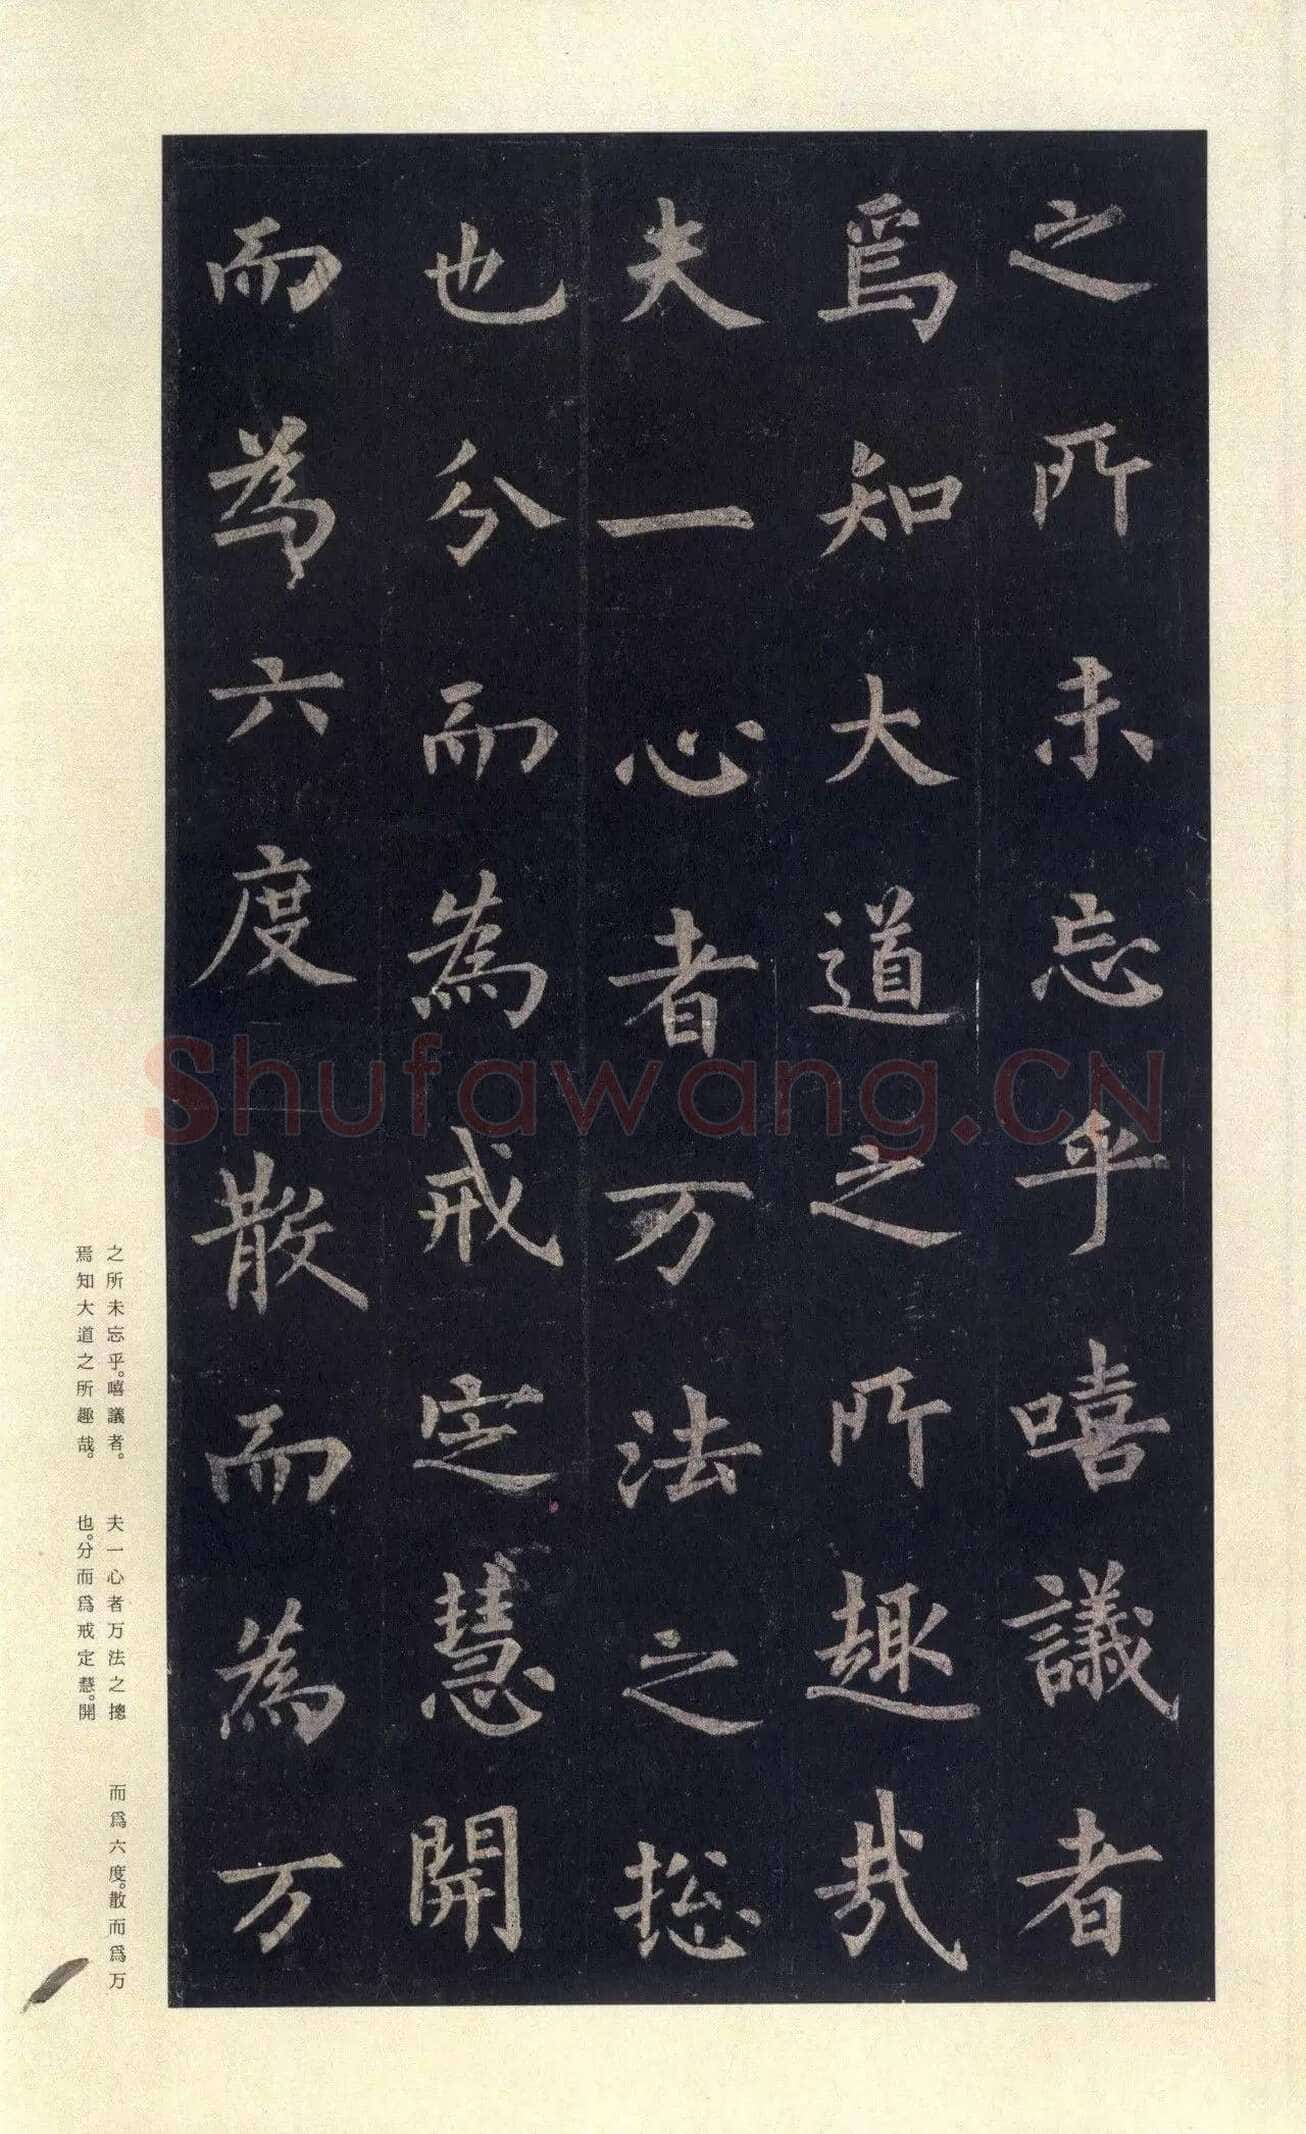 之所未忘乎嘻議者
焉知大道之所趣哉
夫一心者万法之揔
也分而為戒定慧開
而為六度散而為万
之所未忘乎。嘻議者。
焉知大道之所趣哉。
夫一心者万法之摠
也。分而爲戒定慧。開
而爲六度。散而爲万
Shufawang.CN